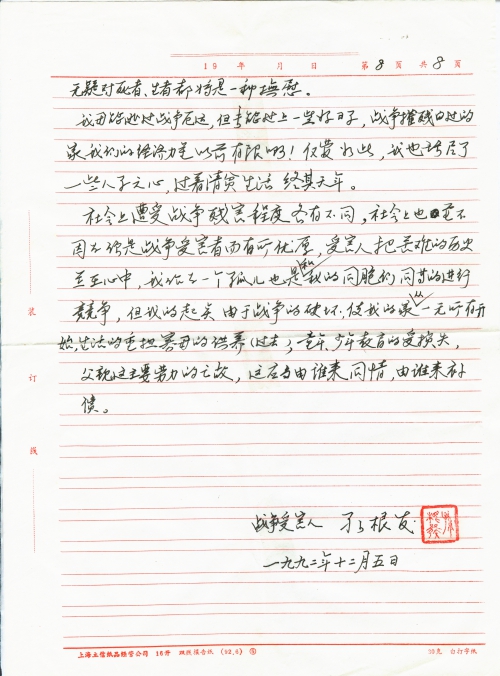 19 年 月 日 第 8 页 共 8 页
无疑对死者、生者都将是一种抚慰。
我母能逃过战争厄运,但未能过上一些好日子,战争摧残的
家我们的经济力是以前有限啊!仅管如此,我也算尽了
一些人子之心,过着清贫生活 终其天年。
社会上遭受战争残害程度各有不同,社会上也并不
因为你是战争受害者而有所优厚,受害人把苦难的历史
在心中,我作为一个孤儿也是和我的同胞们同等的进行
竞争,但我的起点由于战争的破坏,使我的家从一无所有开
始,生活的重担 母的供养(过去);童年、少年教育的受损失,
父亲这主要劳力的亡故,这应当由谁来同情,由谁来补
偿。
战争受害人 孙根发
一九九二年十二月五日
装
订
线
上海立信纸品经营公司 16开 双线报告纸 (92.6) ①
70克 白打字纸